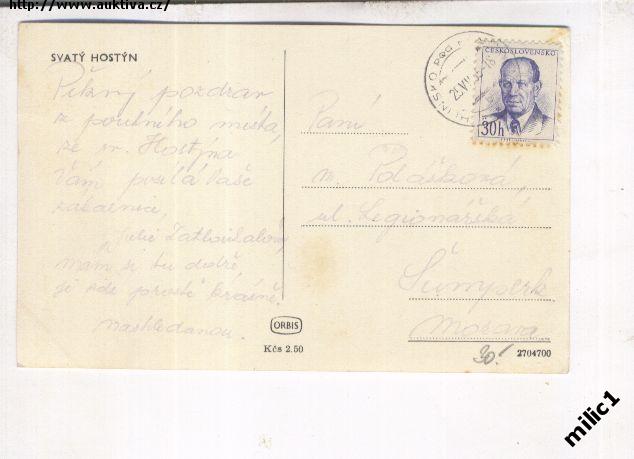 http://www.auktiva.cz/
SVATÝ HOSTÝN
Pěkný pozdrav
z poutního místa,
ze sv. Hostýna
Vám posílá Vaše
zákaznice,
Julie
mám si tu dobře
je zde prostě krásně.
Nashledanou.
ORBIS
Kčs 2.50
HLINSKO POD
ČESKOSLOVENSKO
30h
Paní
m. Polášková,
ul. Legionářská
Šumperk
Morava
30!
2704700
milic1